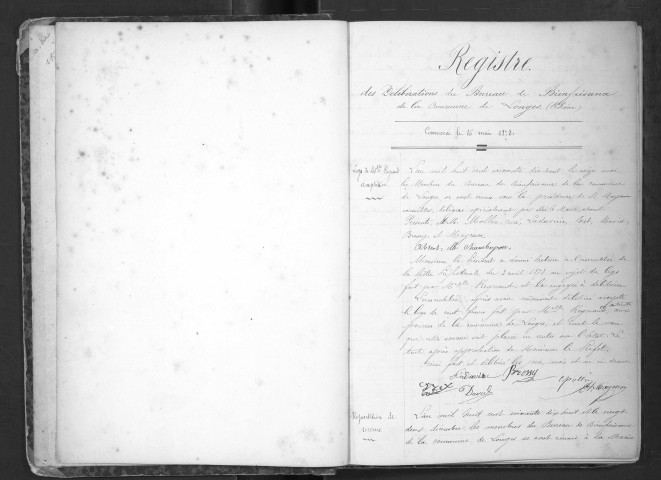 Registre
des Délibérations du Bureau de Bienfaisance
de la Commune de Longes (Rhône)
Commencé le 16 mai 1878.
Legs de Melle Reynaud
acceptation
L'an mil huit cent soixante dix huit le seize mai
les Membres du Bureau de bienfaisance de la commune
de Longes se sont réunis sous la présidence de M.
Présents, MM.
Absent M.
Monsieur le Président a donné lecture à l'assemblée de
la lettre Préfectorale du 2 avril 1878 au sujet du legs
fait par Melle Reynaud et l'a engagée à délibérer
L'assemblée, après avoir mûrement délibéré accepte
le legs de cent francs fait par Melle Reynaud aux
pauvres de la commune de Longes, et émet le vœu
que cette somme soit placée en rentes sur l'état. Le
tout, après approbation de Monsieur le Préfet.
Ainsi fait et délibéré les an, mois et jour ci-dessus
Bressy
Répartition de
secours
L'an mil huit cent soixante dix huit et le vingt
deux décembre, les membres du Bureau de bienfaisance
de la commune de Longes se sont réunis à la Mairie